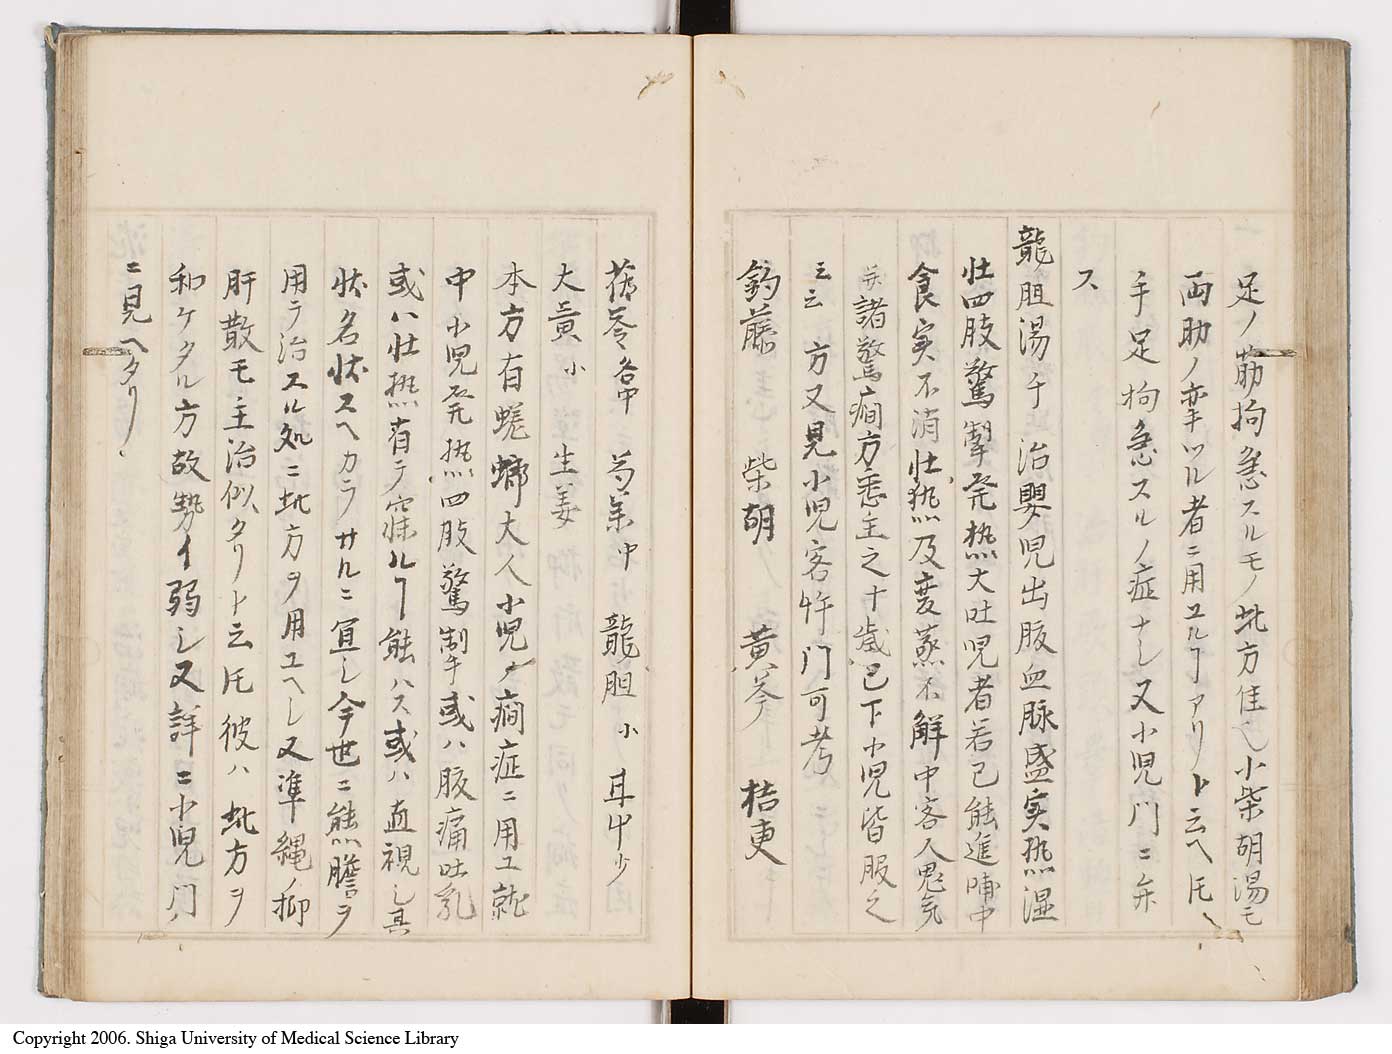 足ノ筋拘急スルモノ此方佳也小柴胡湯モ
両肋ノ牽ツル者ニ用ユルヿアリト云ヘ𪜈
手足拘急スルノ症ナシ又小児門ニ弁
ス
龍胆湯千 治嬰児出腹血脉盛实热湿
壮四肢驚掣発热大吐児者若已能進哺中
食実不消壮热及変蒸不解中客人鬼気
并諸驚癇方悉主之十歳已下小児皆服之
云云 方又見小児客忤門可考
釣藤 柴胡 黄芩 桔更
茯苓各中 芍薬中 龍胆小 甘中少
大黄小 生姜
本方有蜣螂大人小児ノ癇症ニ用ユ就
中小児発热四肢驚掣或ハ腹痛吐乳
或ハ壮热有テ寐ルヿ能ハス或ハ直視し其
状名状スヘカラサルニ宜し今世ニ熊膽ヲ
用ラ治スル処ニ此方ヲ用ユヘし又準縄ノ抑
肝散モ主治似タリト云𪜈彼ハ此方ヲ
和ケタル方故勢イ弱し又詳ニ小児門
ニ見ヘタリ
Copyright 2006. Shiga University of Medical Science Library